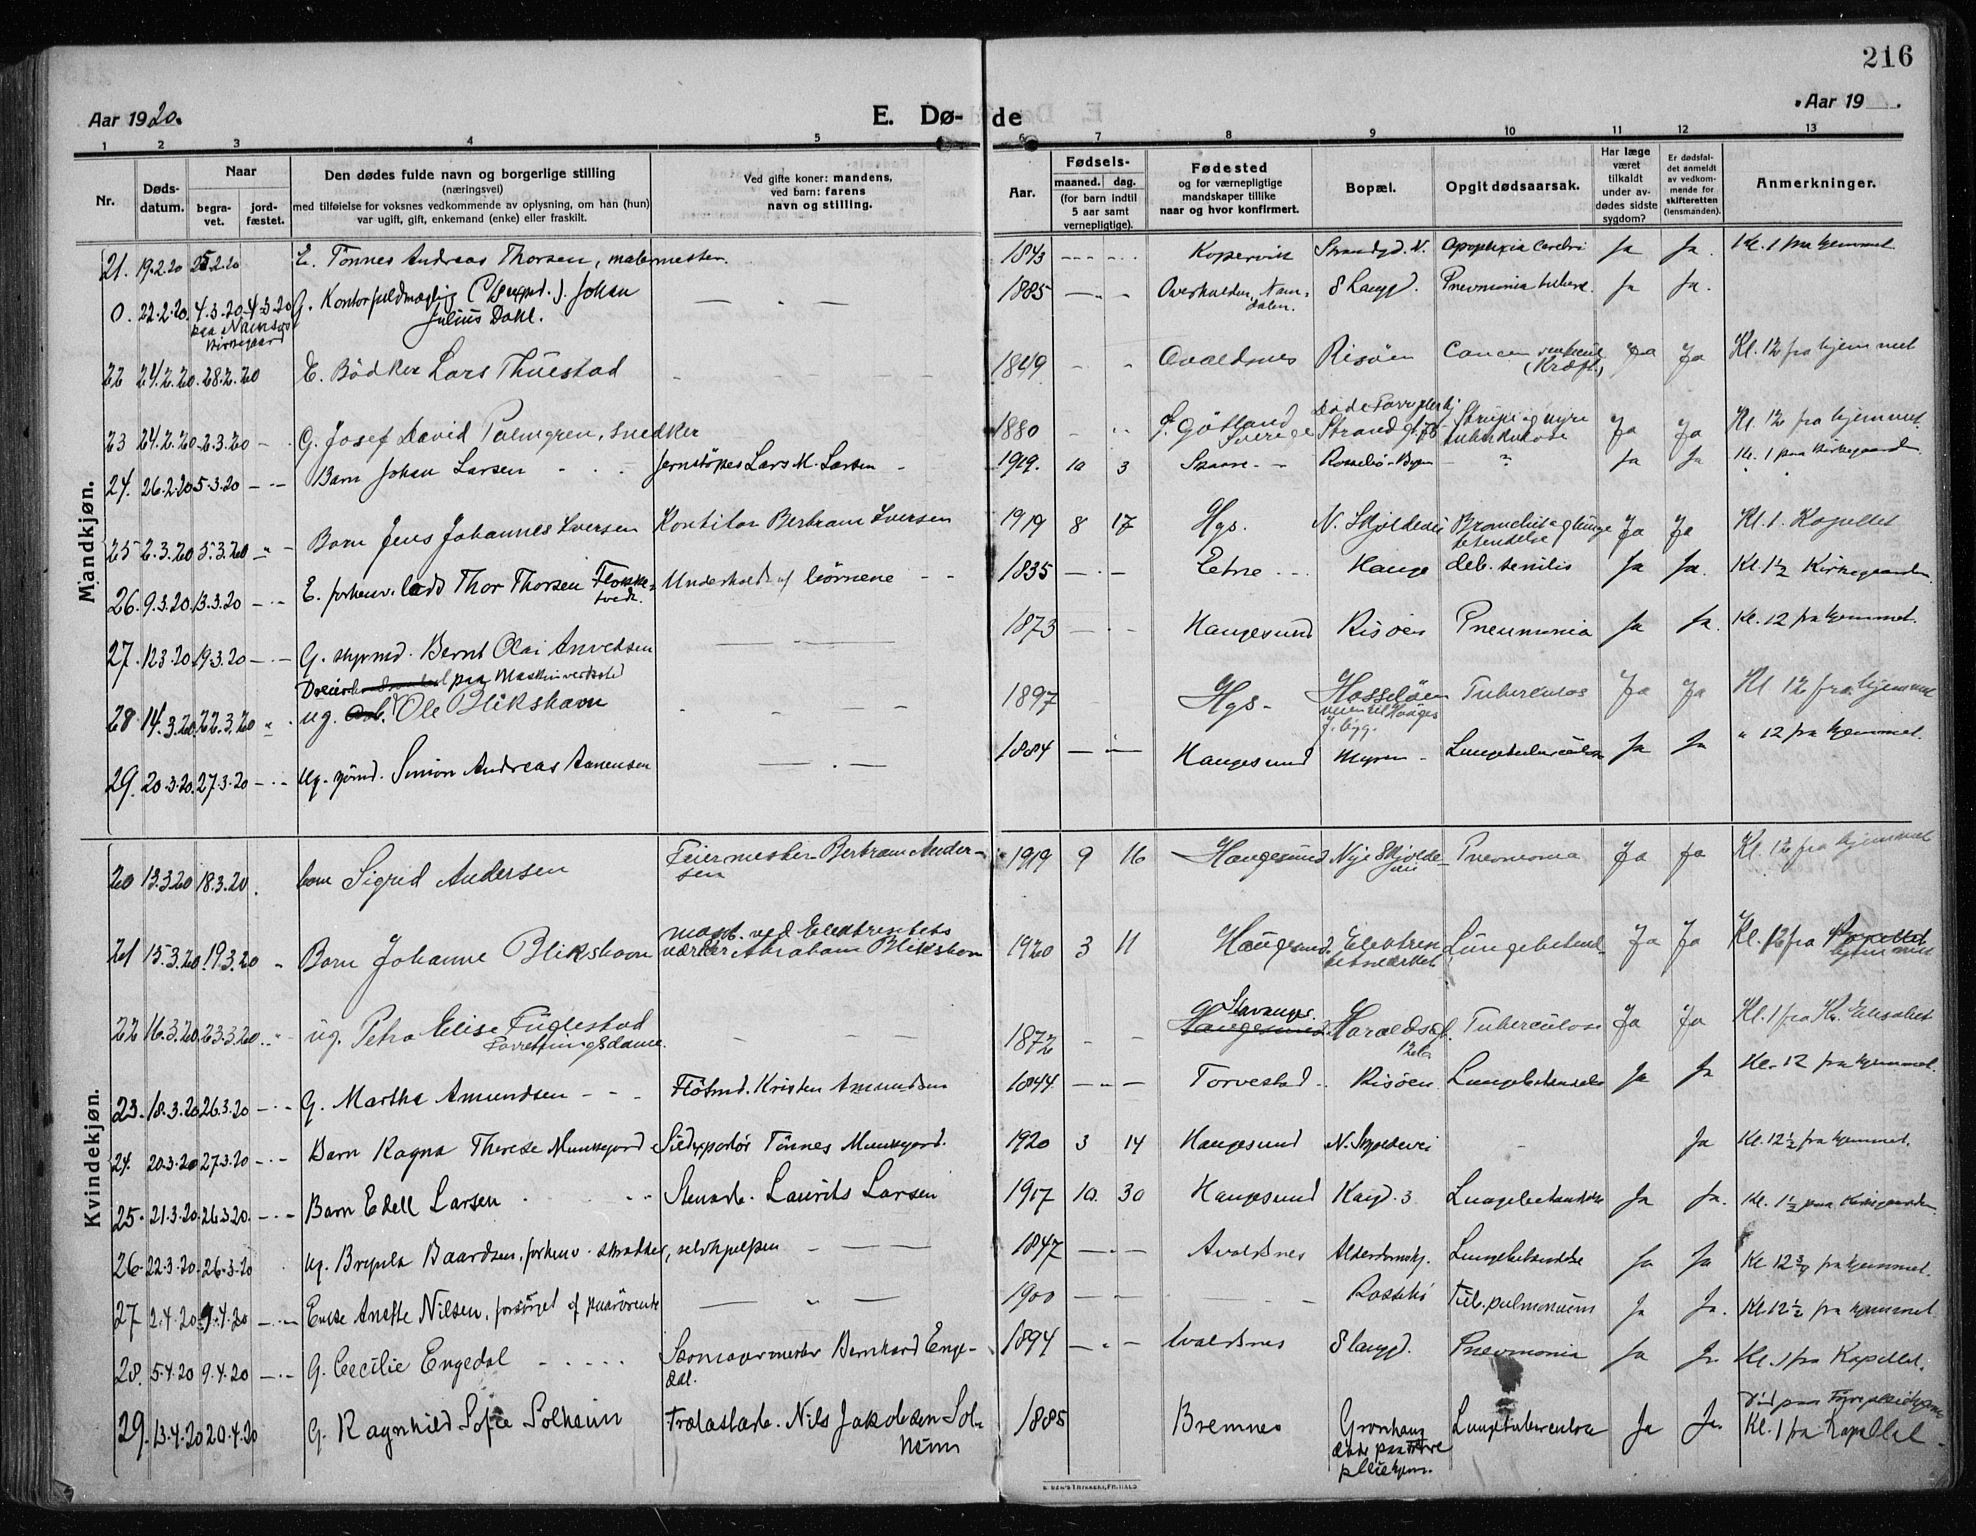 216
Aar 1920.
E. Dø-
de
Aar 19
1 2 3 4 5 6 7 8 9 10 11 12 13
Nr.
Døds-
datum.
Naar
begra-
vet.
jord-
fæstet.
Den dødes fulde navn og borgerlige stilling
(næringsvei)
med tilføielse for voksnes vedkommende av oplysning, om han (hun)
var ugift, gift, enkemand (enke) eller fraskilt.
Ved gifte koner: mandens,
ved barn: farens
navn og stilling.
Aar.
Fødsels-
maaned. dag.
(for barn indtil
5 aar samt
vernepligtige).
Fødested
og for værnepligtige
mandskaper tillike
naar og hvor konfirmert.
Bopæl.
Opgit dødsaarsak.
Har læge
været
tilkaldt
under av-
dødes sidste
sygdom?
Er dødsfal-
det anmeldt
av vedkom-
mende for
skifteretten
(lensmanden).
Anmerkninger.
Mandkjøn.
21. 19.2.20 25.2.20 E. Tönnes Andreas Thorsen, malermester. 1843 Kopervik Strandgd. N. Apoplexia cerebri Ja Ja. Kl. 1 fra hjemmet.
0. 22.2.20 4.3.20 4.3.20 G. Kontorfuldmægtig Johan 1885 Overhalden, Nam- Slaugd. Pneumonia Ja Ja.
paa Namsos
Kirkegaard
Julius Dahl.
dalen.
22 24.2.20 28.2.20 E. Bødker Lars Thuestad 1849 Avaldsnes Risøen Cancer ventriculi Ja Ja Kl. 12 fra hjemmet
(Kræft)
23 24.2.20 2.3.20 G. Josef David Palmgren, snedker 1880 Gøtland Strandgt. Strupe og nyre Ja Ja Kl. 12 fra hjemmet.
Sverige tuberkulose
24. 26.2.20 5.3.20 Barn Johan Larsen Lars M. Larsen 1919. 10 3 Skaare Rossebø Ja Ja Kl. 1 paa Kirkegaarden
25 2.3.20 5.3.20 Barn Jens Johannes Iversen Kontitor Bertram Iversen 1919 8 17 Hgs. N. Skjoldevei Bronchit og lunge Ja Ja Kl. 1. Kapellet
betendelse
26. 9.3.20 13.3.20 E. forhenv. Thor Thorsen Underholdt af börnene 1835 Etne Hauge deb. senilis Ja Ja. Kl. 1½ Kirkegaarden.
27. 12.3.20 19.3.20 G. styrmd. Bernt Olai 1873 Haugesund Risøen Pneumonia Ja Ja. Kl. 12 fra hjemmet.
Dreier paa Maskinverksted
28 14.3.20 22.3.20 ug. Ole Blikshavn 1897 Hgs. Hasseløen Tuberculos Ja Ja Kl 12 fra hjemmet
29. 20.3.20 27.3.20 Ug. sjömd. Simon Andreas Aanensen 1884 Haugesund Myren Lungetuberculose Ja Ja " 12 fra hjemmet.
Kvindekjøn.
20 13.3.20 18.3.20. barn Sigrid Andersen Feiermester Bertram Ander- 1919 9 16 Haugesund Nye Skjolde- Pneumonia Ja Ja Kl. 12 fra hjemmet
sen
21 15.3.20 19.3.20 Barn Johanne Blikshavn værket Abraham Blikshavn 1920 3 11 Haugesund. Elektrici- Lungebetend. Ja Ja Kl. 12 fra Kapellet
mont. ved Elektricitets
tetsværket hjemmet
22 16.3.20 23.3.20 ug. Petra Elise Fuglestad 1872 Haugesund Haraldsgt. Tuberculose Ja Ja Kl. 1 fra Kr. Elisabet
Stavanger.
Forretningsdame
23. 18.3.20 26.3.20 G. Martha Amundsen Flötmd. Kristen Amundsen 1844 Torvestad Risøen. Lungebetændelse Ja Ja Kl. 12 fra hjemmet.
24. 20.3.20 27.3.20 Barn Ragna Therese Munkejord Tönnes Munkejord. 1920 3 14 Haugesund N. Skjoldevei Ja Kl. 12½ fra hjemmet.
25. 21.3.20 26.3.20. Barn Edell Larsen Stenarb. Laurits Larsen 1917 10. 30 Haugesund Kaigd. 3 Lungebetændelse Ja Ja. Kl. 1½ paa Kirkegaarden.
26 22.3.20 26.3.20 Ug. Baardsen, forhenv. selvhjulpen 1847 Avaldsnes Alderdomshj. Lungebetændelse Ja Ja Kl. 12¾ fra hjemmet.
27 2.4.20 9.4.20 Nilsen, forsörget af paarörende 1900 Rossebö Tub. pulmonum Ja Ja. Kl 12½ fra hjemmet
28. 5.4.20 9.4.20 G. Cecilie Engedal Bernhard Enge- 1894 Avaldsnes Slaugd. Pneumonia Ja Ja. Kl. 1 fra Kapellet.
dal.
29. 13.4.20 20.4.20 G. Ragnhild Sofie Solheim Trælastarb. Nils Jakobsen Sol- 1885 Bremnes Grønhaug Lungetuberculose Ja Ja. Kl. 1 fra Kapellet
heim
døde paa
pleiehjem.